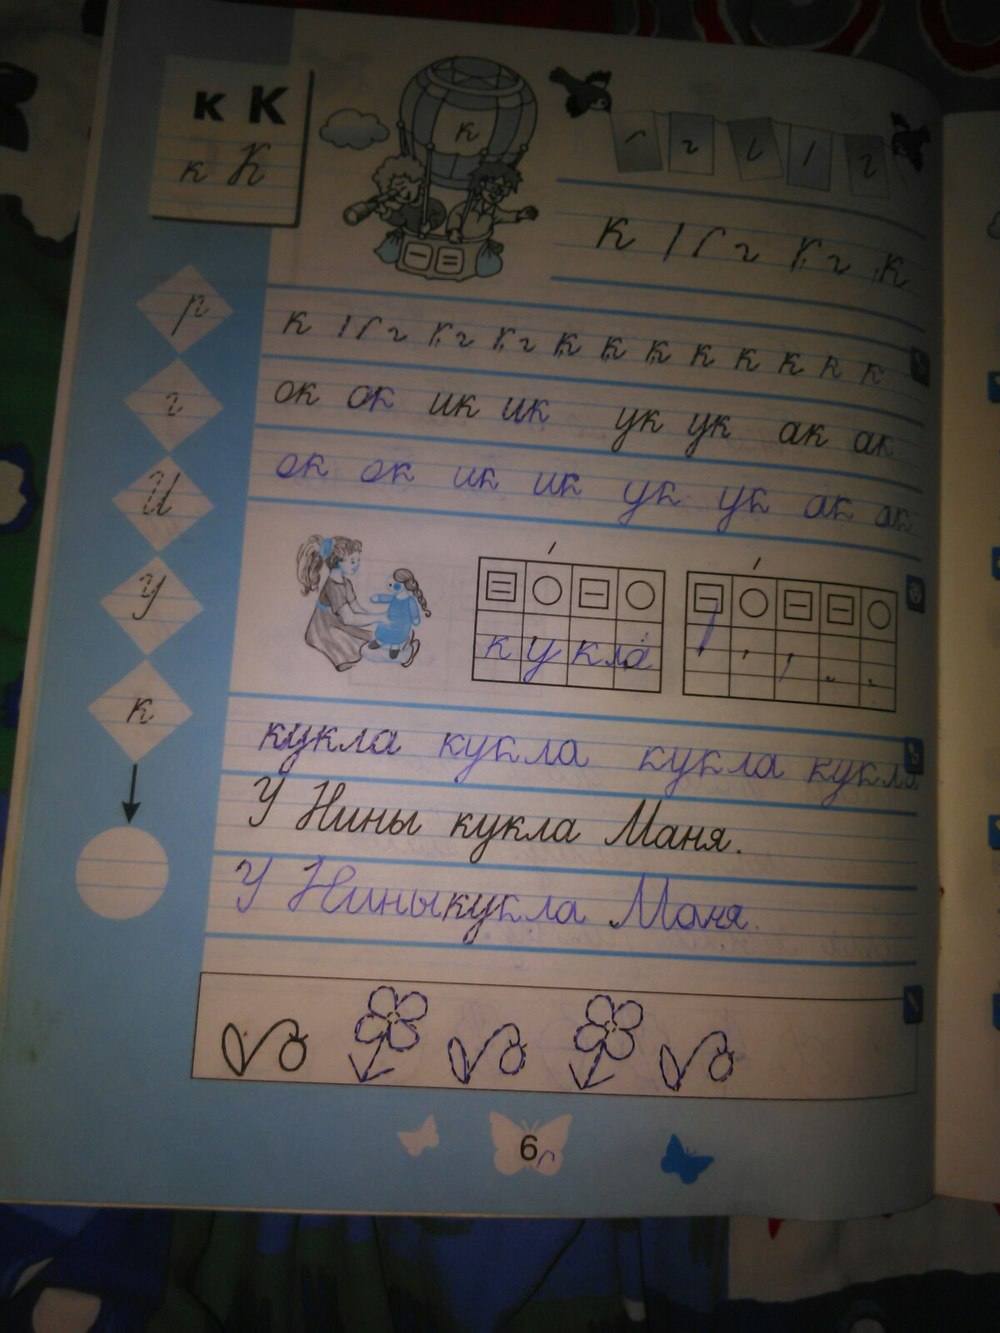 к К
к К
к
к г г к
р
к г к г к г к к к к к к к к
г
ок ок ик ик ук ук ак ак
И
ок ок ик ик ук ук ак ак
У
кукла
к
кукла кукла кукла кукла
У Нины кукла Маня.
У Нины кукла Маня.
6